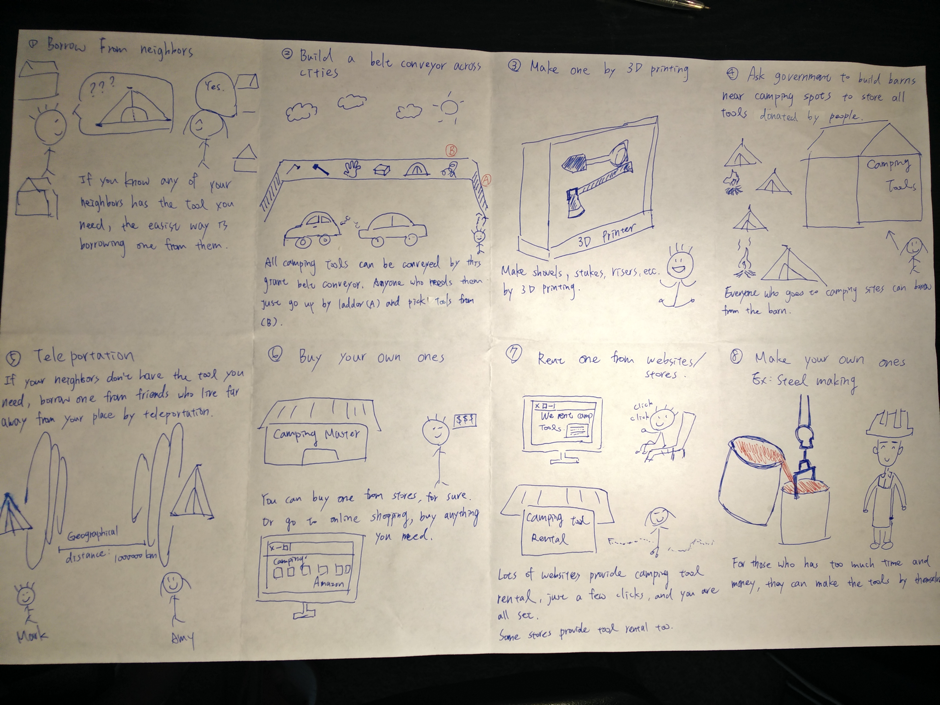 ① Borrow From neighbors
???
Yes.
If you know any of your
neighbors has the tool you
need, the easist way is
borrowing one from them.
② Build a belt conveyor across
cities
B
A
All camping tools can be conveyed by this
giant belt conveyor. Anyone who needs them
just go up by ladder (A) and pick tools from
(B).
③ Make one by 3D printing
3D Printer
Make shovels, stakes, risers, etc.
by 3D printing.
④ Ask government to build barns
near camping spots to store all
tools donated by people.
Camping
Tools
Everyone who goes to camping sites can borrow
from the barn.
⑤ Teleportation
If your neighbors don't have the tool you
need, borrow one from friends who live far
away from your place by teleportation.
Geographical
distance: 100000 km
Mark
Amy
⑥ Buy your own ones
Camping Master
$$$
You can buy one from stores, for sure.
Or go to online shopping, buy anything
you need.
Camping
Amazon
⑦ Rent one from websites/
stores.
We rent camp
Tools
click
click
Camping tool
Rental
Lots of websites provide camping tool
rental, just a few clicks, and you are
all set.
Some stores provide tool rental too.
⑧ Make your own ones
Ex: Steel making
For those who has too much time and
money, they can make the tools by themselves